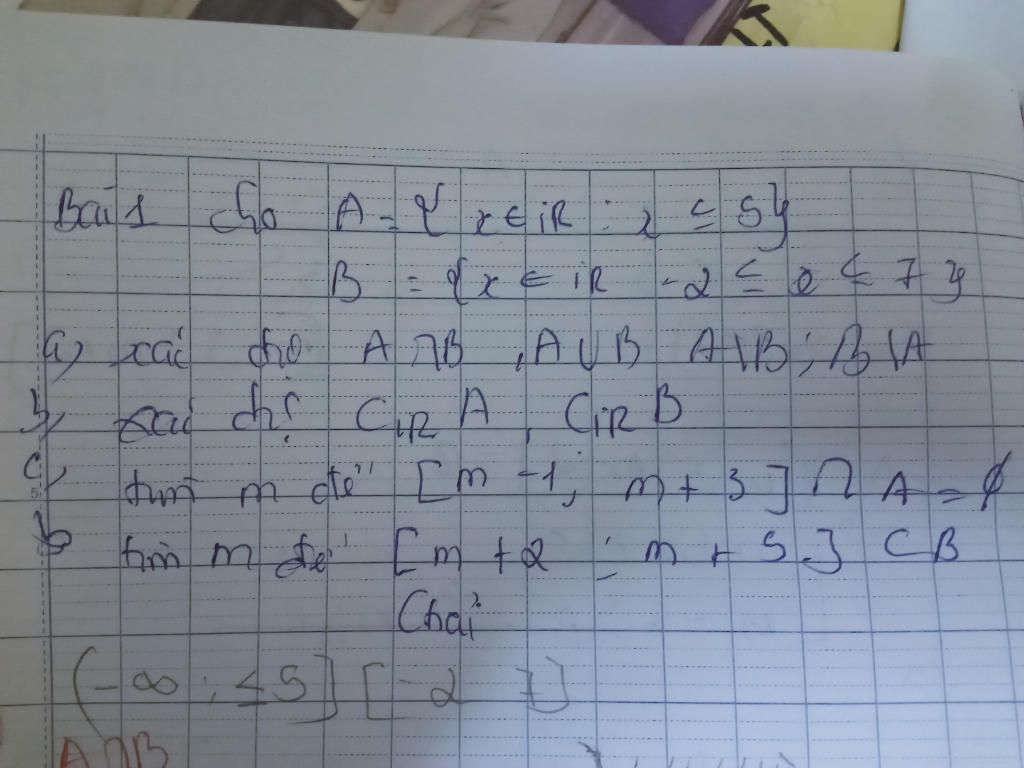 Bài 1 cho A = { x ∈ iR : x ≤ 5}
B = { x ∈ iR -2 ≤ x ≤ 7 }
a, xác cho A ∩ B , A ∪ B A \ B ; B \ A
b, xác chị C iR A , C iR B
c, tìm m để [m - 1; m + 3 ] ∩ A = ∅
b tìm m để [m + 2 ; m + 5 ] ⊂ B
Chải
(-∞ ; ≤ 5 ] [-2 7]
A ∩ B